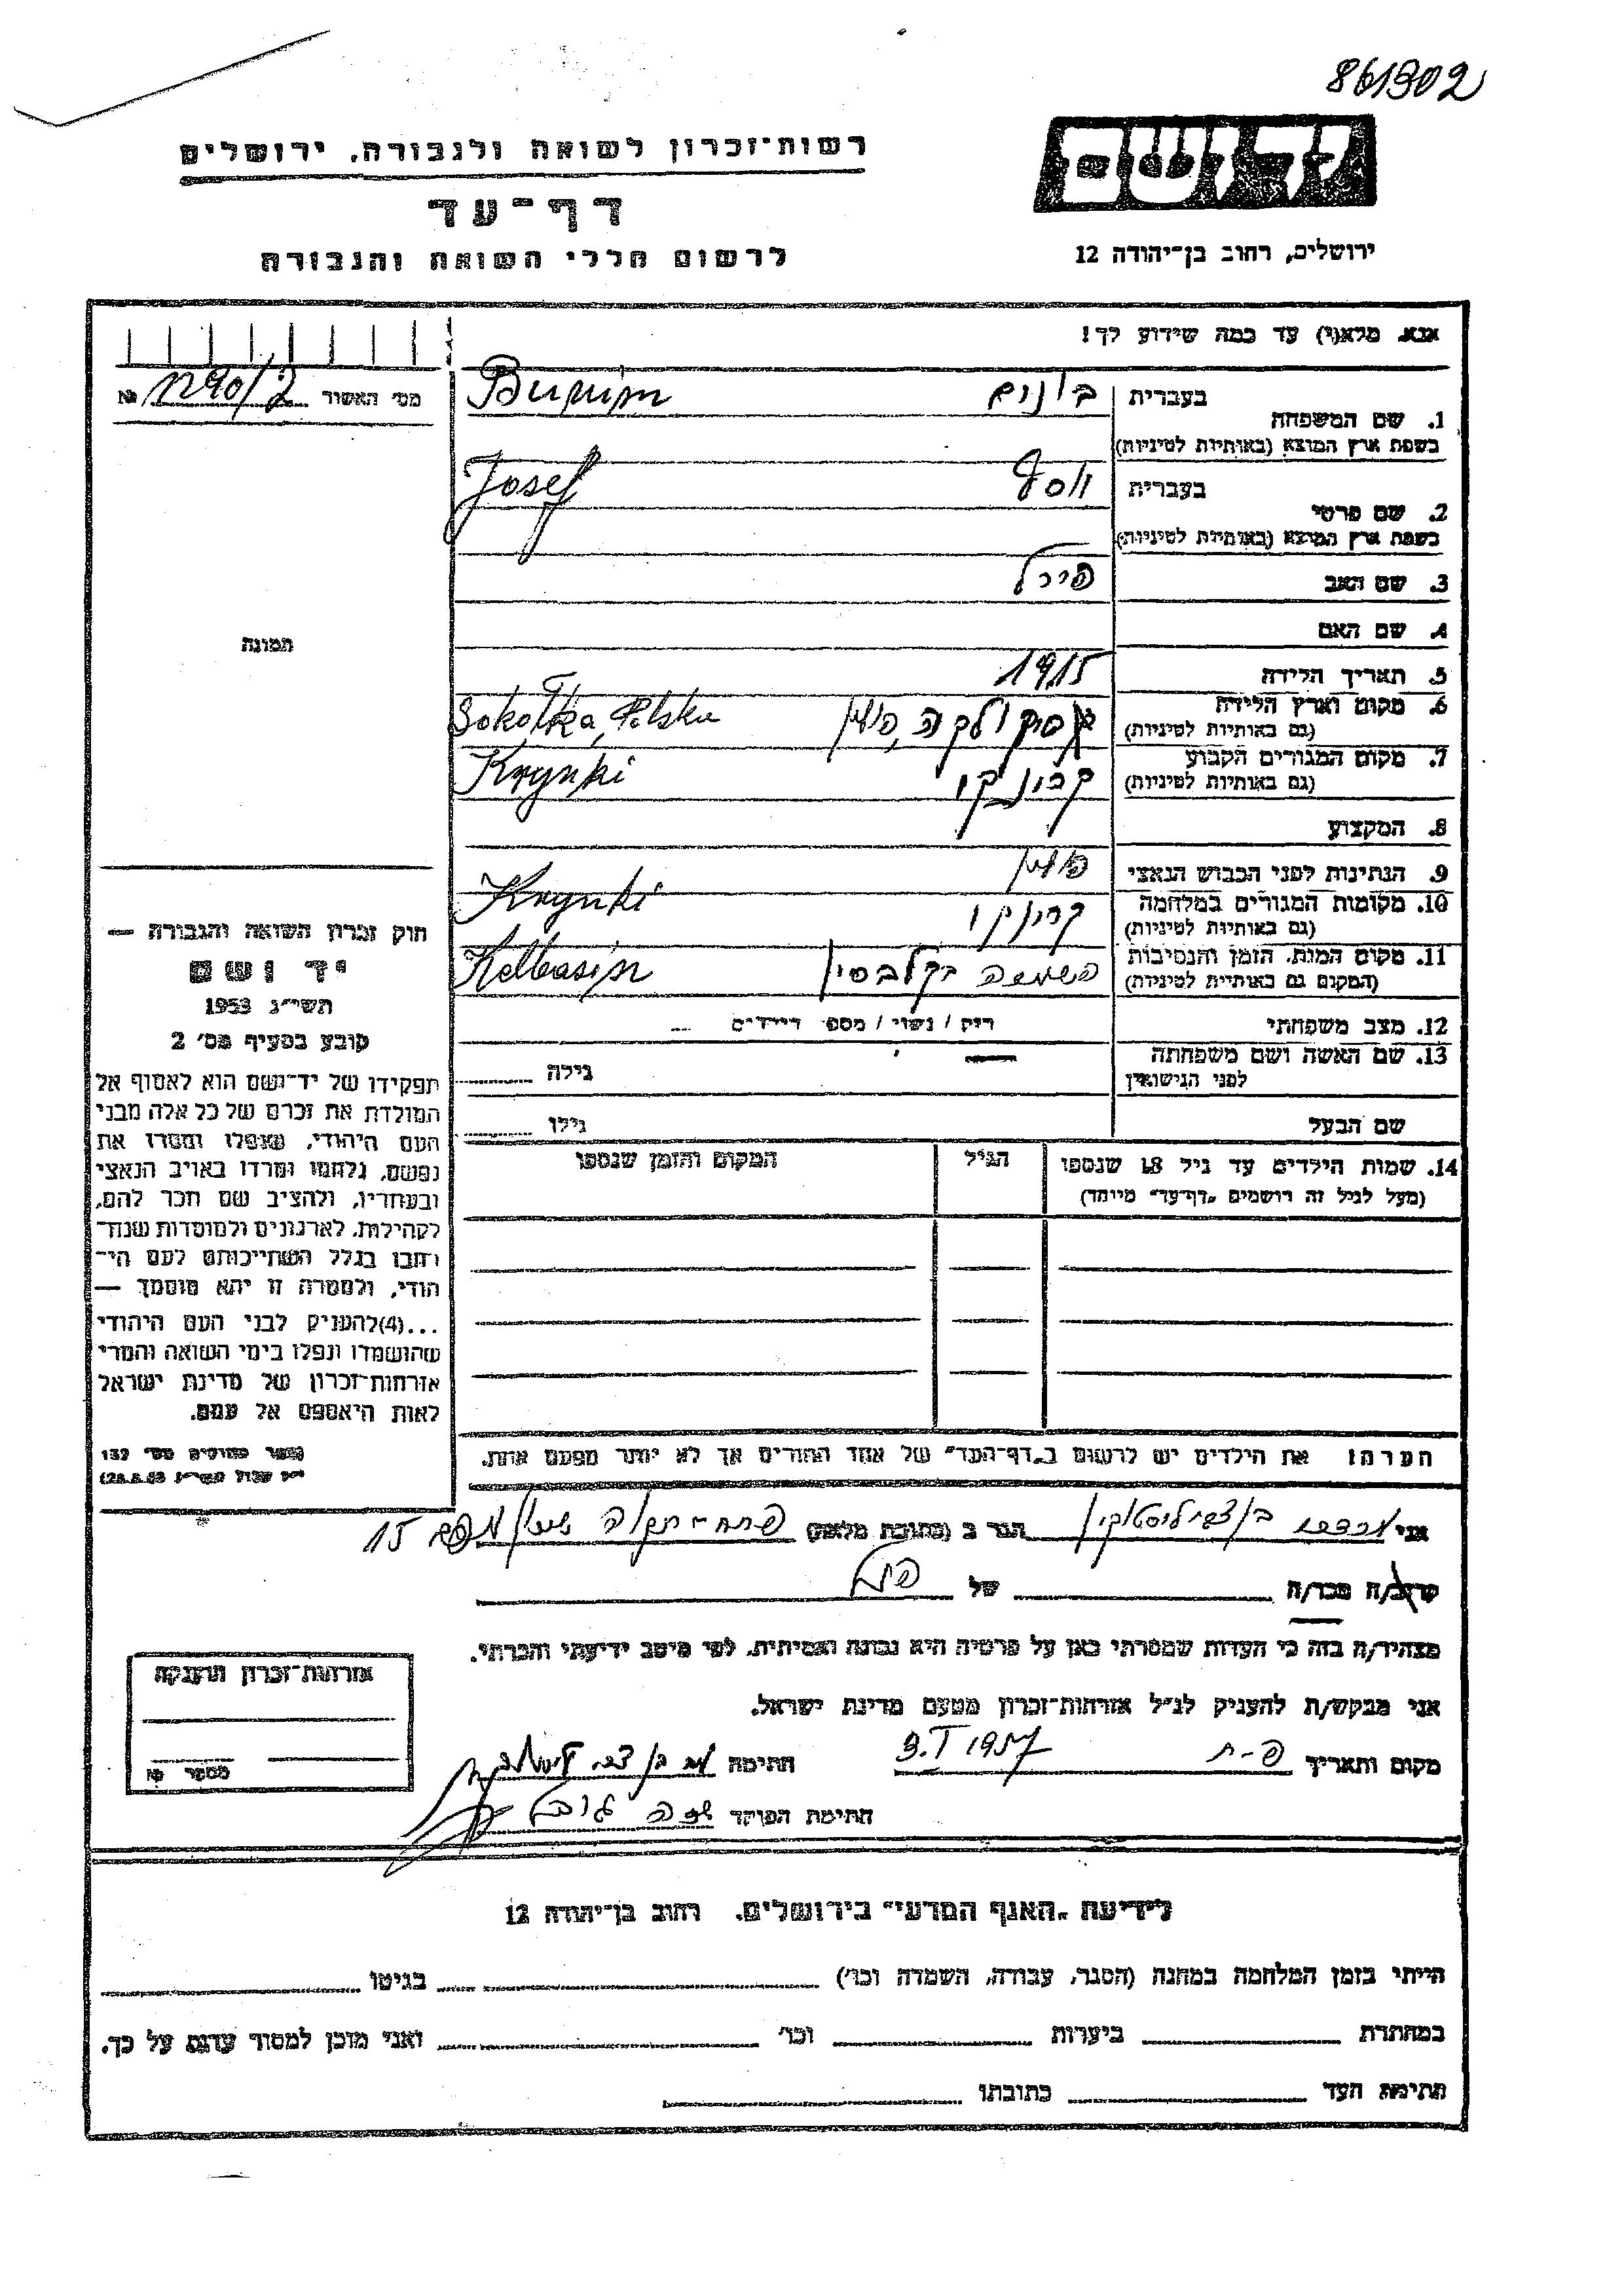 861302
יד ושם
רשות־זכרון לשואה ולגבורה, ירושלים
דף־עד
לרשום חללי השואה והגבורה
ירושלים, רחוב בן־יהודה 12
אנא, מלא(י) עד כמה שידוע לך!
מס׳ האשור №
1. שם המשפחה
בעברית בונים Bunim
בשפת ארץ המוצא (באותיות לטיניות)
2. שם פרטי
בעברית יוסף Josef
בשפת ארץ המוצא (באותיות לטיניות)
3. שם האב
4. שם האם
5. תאריך הלידה 1915
6. מקום וארץ הלידה סוקולקה, פולין Sokołka, Polska
(גם באותיות לטיניות)
7. מקום המגורים הקבוע קרינקי Krynki
(גם באותיות לטיניות)
8. המקצוע
9. הנתינות לפני הכבוש הנאצי פולין
10. מקומות המגורים במלחמה קרינקי Krynki
(גם באותיות לטיניות)
11. מקום המות, הזמן והנסיבות השמדה בקלבסין Kelbasin
(המקום גם באותיות לטיניות)
12. מצב משפחתי רוק / נשוי / מספר הילדים
13. שם האשה ושם משפחתה
לפני הנישואין גילה
שם הבעל גילו
14. שמות הילדים עד גיל 18 שנספו הגיל המקום והזמן שנספו
(מעל לגיל זה רושמים „דף־עד״ מיוחד)
הערה: את הילדים יש לרשום ב„דף־העד״ של אחד ההורים אך לא יותר מפעם אחת.
תמונה
חוק זכרון השואה והגבורה —
יד ושם
תשי״ג 1953
קובע בסעיף מס׳ 2
תפקידו של יד־ושם הוא לאסוף אל
המולדת את זכרם של כל אלה מבני
העם היהודי, שנפלו ומסרו את
נפשם, נלחמו ומרדו באויב הנאצי
ובעוזריו, ולהציב שם וזכר להם,
לקהילות, לארגונים ולמוסדות שנח־
רבו בגלל השתייכותם לעם הי־
הודי, ולמטרה זו יהא מוסמך —
...(4)להעניק לבני העם היהודי
שהושמדו ונפלו בימי השואה והמרי
אזרחות־זכרון של מדינת ישראל
לאות היאספם אל עמם.
(ספר החוקים מס׳ 132
אני הגר ב (כתובת מלאה) פתח-תקוה 15
קרוב/ה מכר/ה של
מצהיר/ה בזה כי העדות שמסרתי כאן על פרטיה היא נכונה ואמיתית, לפי מיטב ידיעתי והכרתי.
אני מבקש/ת להעניק לנ״ל אזרחות־זכרון מטעם מדינת ישראל.
מקום ותאריך פ-ת 9.I 1957 חתימה
חתימת הפוקד
אזרחות־זכרון הוענקה
מספר №
לידיעת „האגף המדעי״ בירושלים, רחוב בן־יהודה 12
הייתי בזמן המלחמה במחנה (הסגר, עבודה, השמדה וכו׳) בגיטו
במחתרת ביערות וכו׳ ואני מוכן למסור עדות על כך.
חתימת העד כתובתו